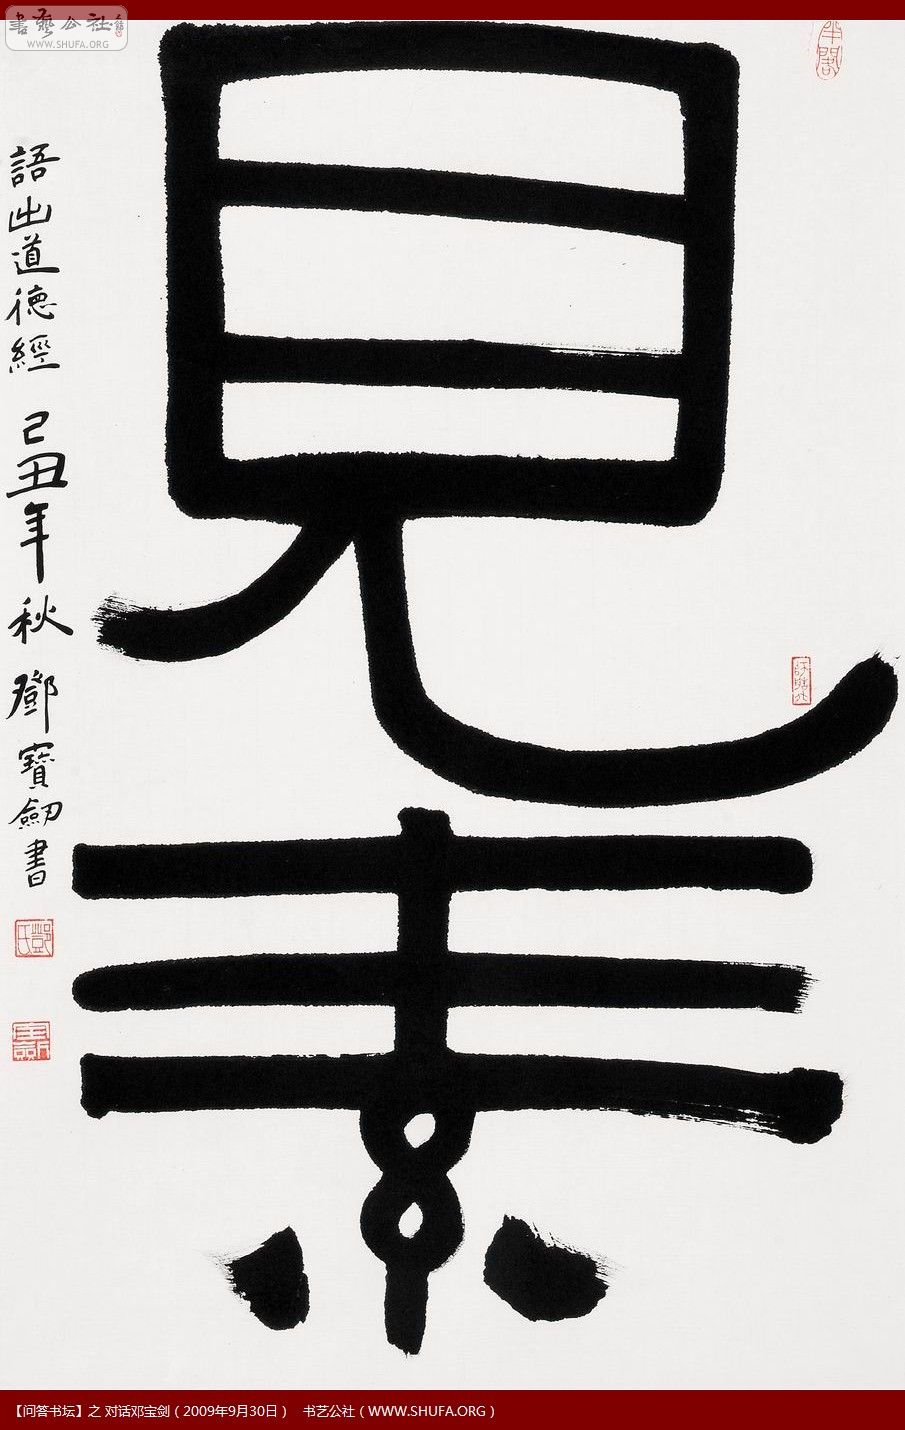 書藝公社
WWW.SHUFA.ORG
見素
語出道德經 己丑年秋 鄧寶劒書
鄧氏
【问答书坛】之 对话邓宝剑（2009年9月30日） 书艺公社（WWW.SHUFA.ORG）